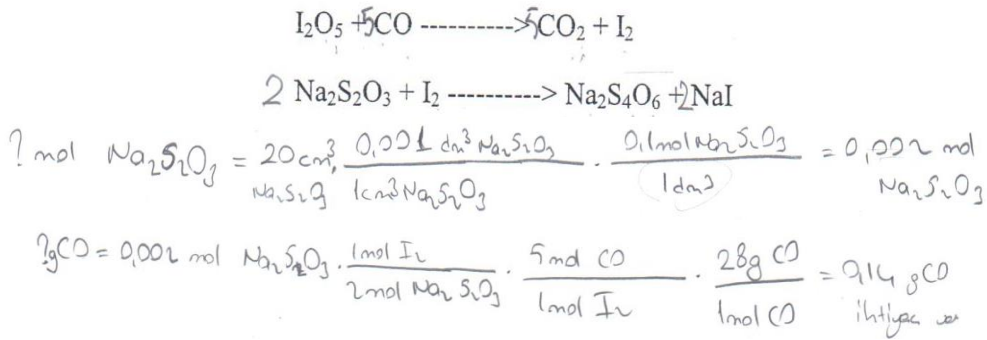 I₂O₅ + 5CO ----------> 5CO₂ + I₂
2 Na₂S₂O₃ + I₂ ----------> Na₂S₄O₆ + 2NaI
? mol Na₂S₂O₃ = 20 cm³ Na₂S₂O₃ . 0,001 dm³ Na₂S₂O₃ / 1 cm³ Na₂S₂O₃ . 0,1 mol Na₂S₂O₃ / 1 dm³ = 0,002 mol Na₂S₂O₃
? g CO = 0,002 mol Na₂S₂O₃ . 1 mol I₂ / 2 mol Na₂S₂O₃ . 5 mol CO / 1 mol I₂ . 28 g CO / 1 mol CO = 0,14 g CO ihtiyaç var